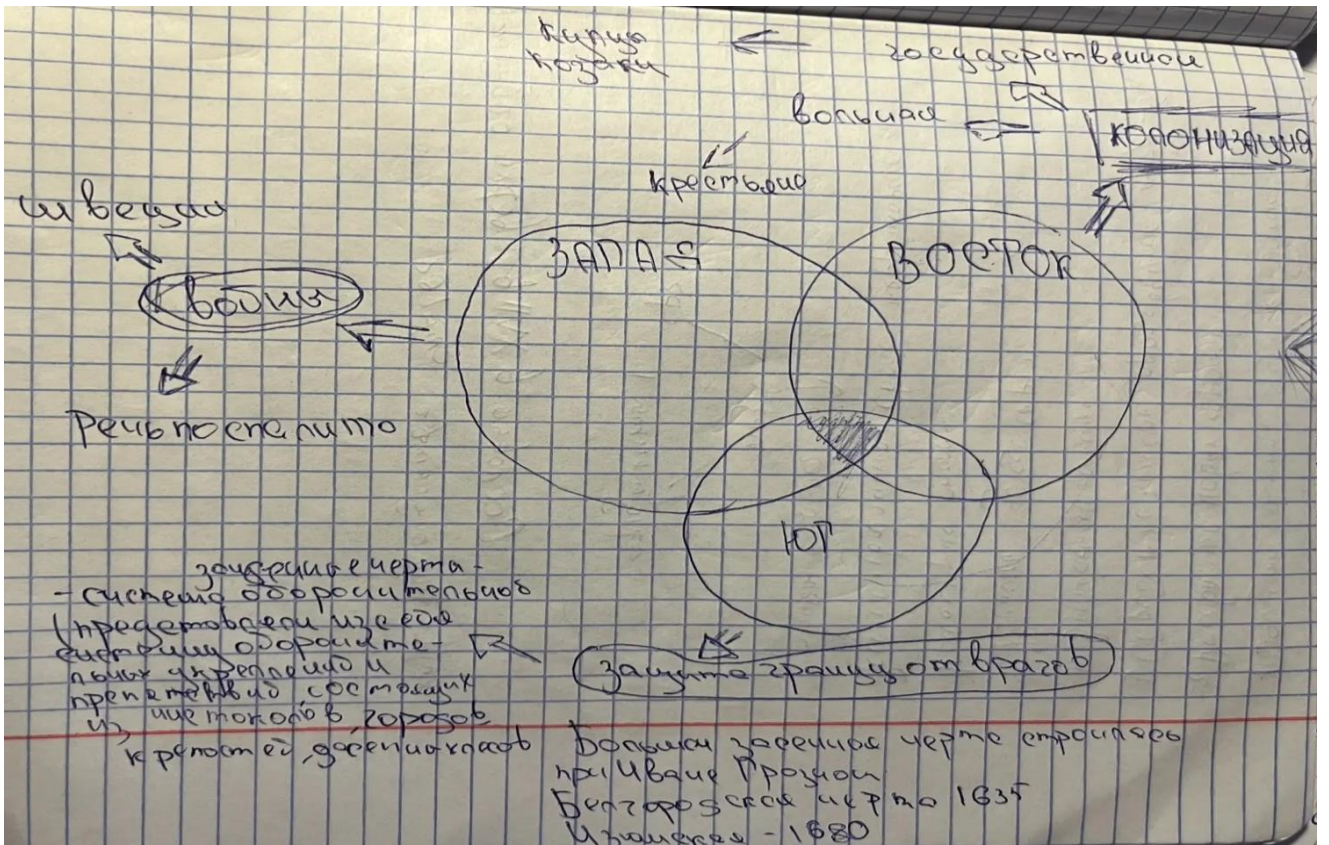 купцы
казаки
государственной
вольная
КОЛОНИЗАЦИЯ
крестьяне
швеция
ЗАПАД
ВОСТОК
войны
Речь посполито
ЮГ
засечные черта -
- система оборонительноо
представляли из себя
систему оборонite-
льных укреплений и
препятствий, состоящих
из частоколов, городов
крепостей
защита границ от врагов
Большая засечная черта строилась
при Иване Грозном
Белгородская черта 1635
Изюмская - 1680